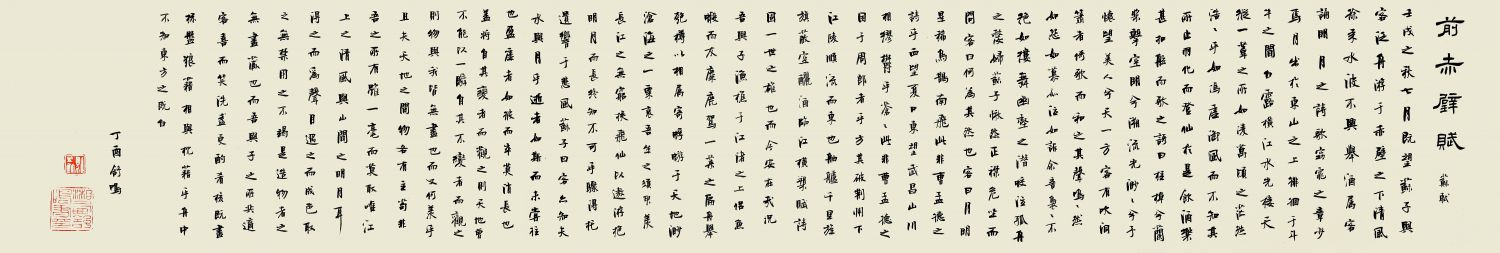 前赤壁賦
蘇軾
壬戌之秋七月既望蘇子與
客泛舟游于赤壁之下清風
徐來水波不興舉酒屬客
誦明月之詩歌窈窕之章少
焉月出於東山之上徘徊于斗
牛之間白露橫江水光接天
縱一葦之所如凌萬頃之茫然
浩浩乎如馮虛御風而不知其
所止羽化而登仙於是飲酒樂
甚扣舷而歌之歌曰桂棹兮蘭
槳擊空明兮溯流光渺渺兮予
懷望美人兮天一方客有吹洞
簫者倚歌而和之其聲嗚嗚然
如怨如慕如泣如訴余音裊裊不
絕如縷舞幽壑之潛蛟泣孤舟
之嫠婦蘇子愀然正襟危坐而
問客曰何為其然也客曰月明
星稀烏鵲南飛此非曹孟德之
詩乎西望夏口東望武昌山川
相繆鬱乎蒼蒼此非曹孟德之
困于周郎者乎方其破荊州下
江陵順流而東也舳艫千里旌
旗蔽空釃酒臨江橫槊賦詩
固一世之雄也而今安在哉況
吾與子漁樵于江渚之上侶魚
蝦而友麋鹿駕一葉之扁舟舉
匏樽以相屬寄蜉蝣于天地渺
滄海之一粟哀吾生之須臾羨
長江之無窮挾飛仙以遨游抱
明月而長終知不可乎驟得托
遺響于悲風蘇子曰客亦知夫
水與月乎逝者如斯而未嘗往
也盈虛者如彼而卒莫消長也
蓋將自其變者而觀之則天地曾
不能以一瞬自其不變者而觀之
則物與我皆無盡也而又何羨乎
且夫天地之間物各有主苟非
吾之所有雖一毫而莫取唯江
上之清風與山間之明月耳
得之而為聲目遇之而成色取
之無禁用之不竭是造物者之
無盡藏也而吾與子之所共適
客喜而笑洗盞更酌肴核既盡
杯盤狼藉相與枕藉乎舟中
不知東方之既白
丁酉舒鳴